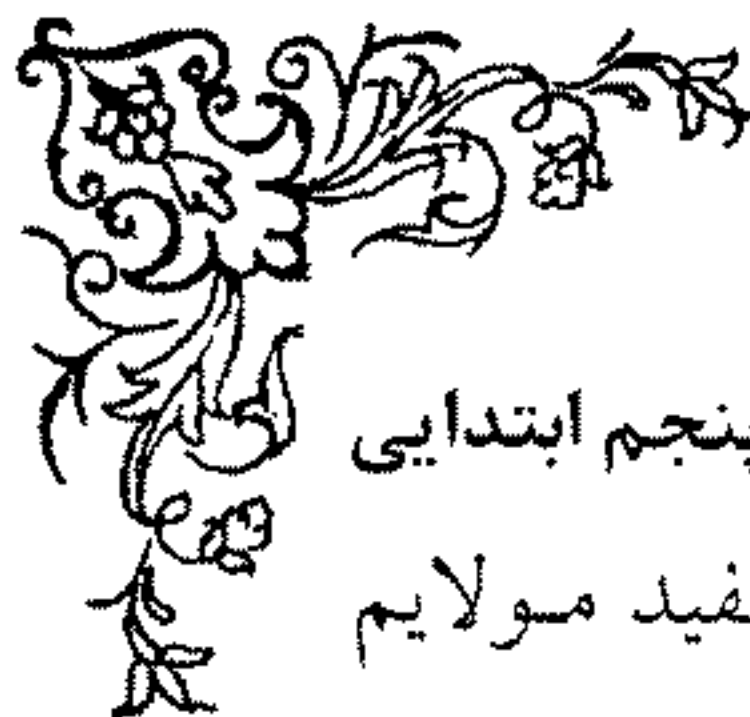 پنجم ابتدایی
مولایم